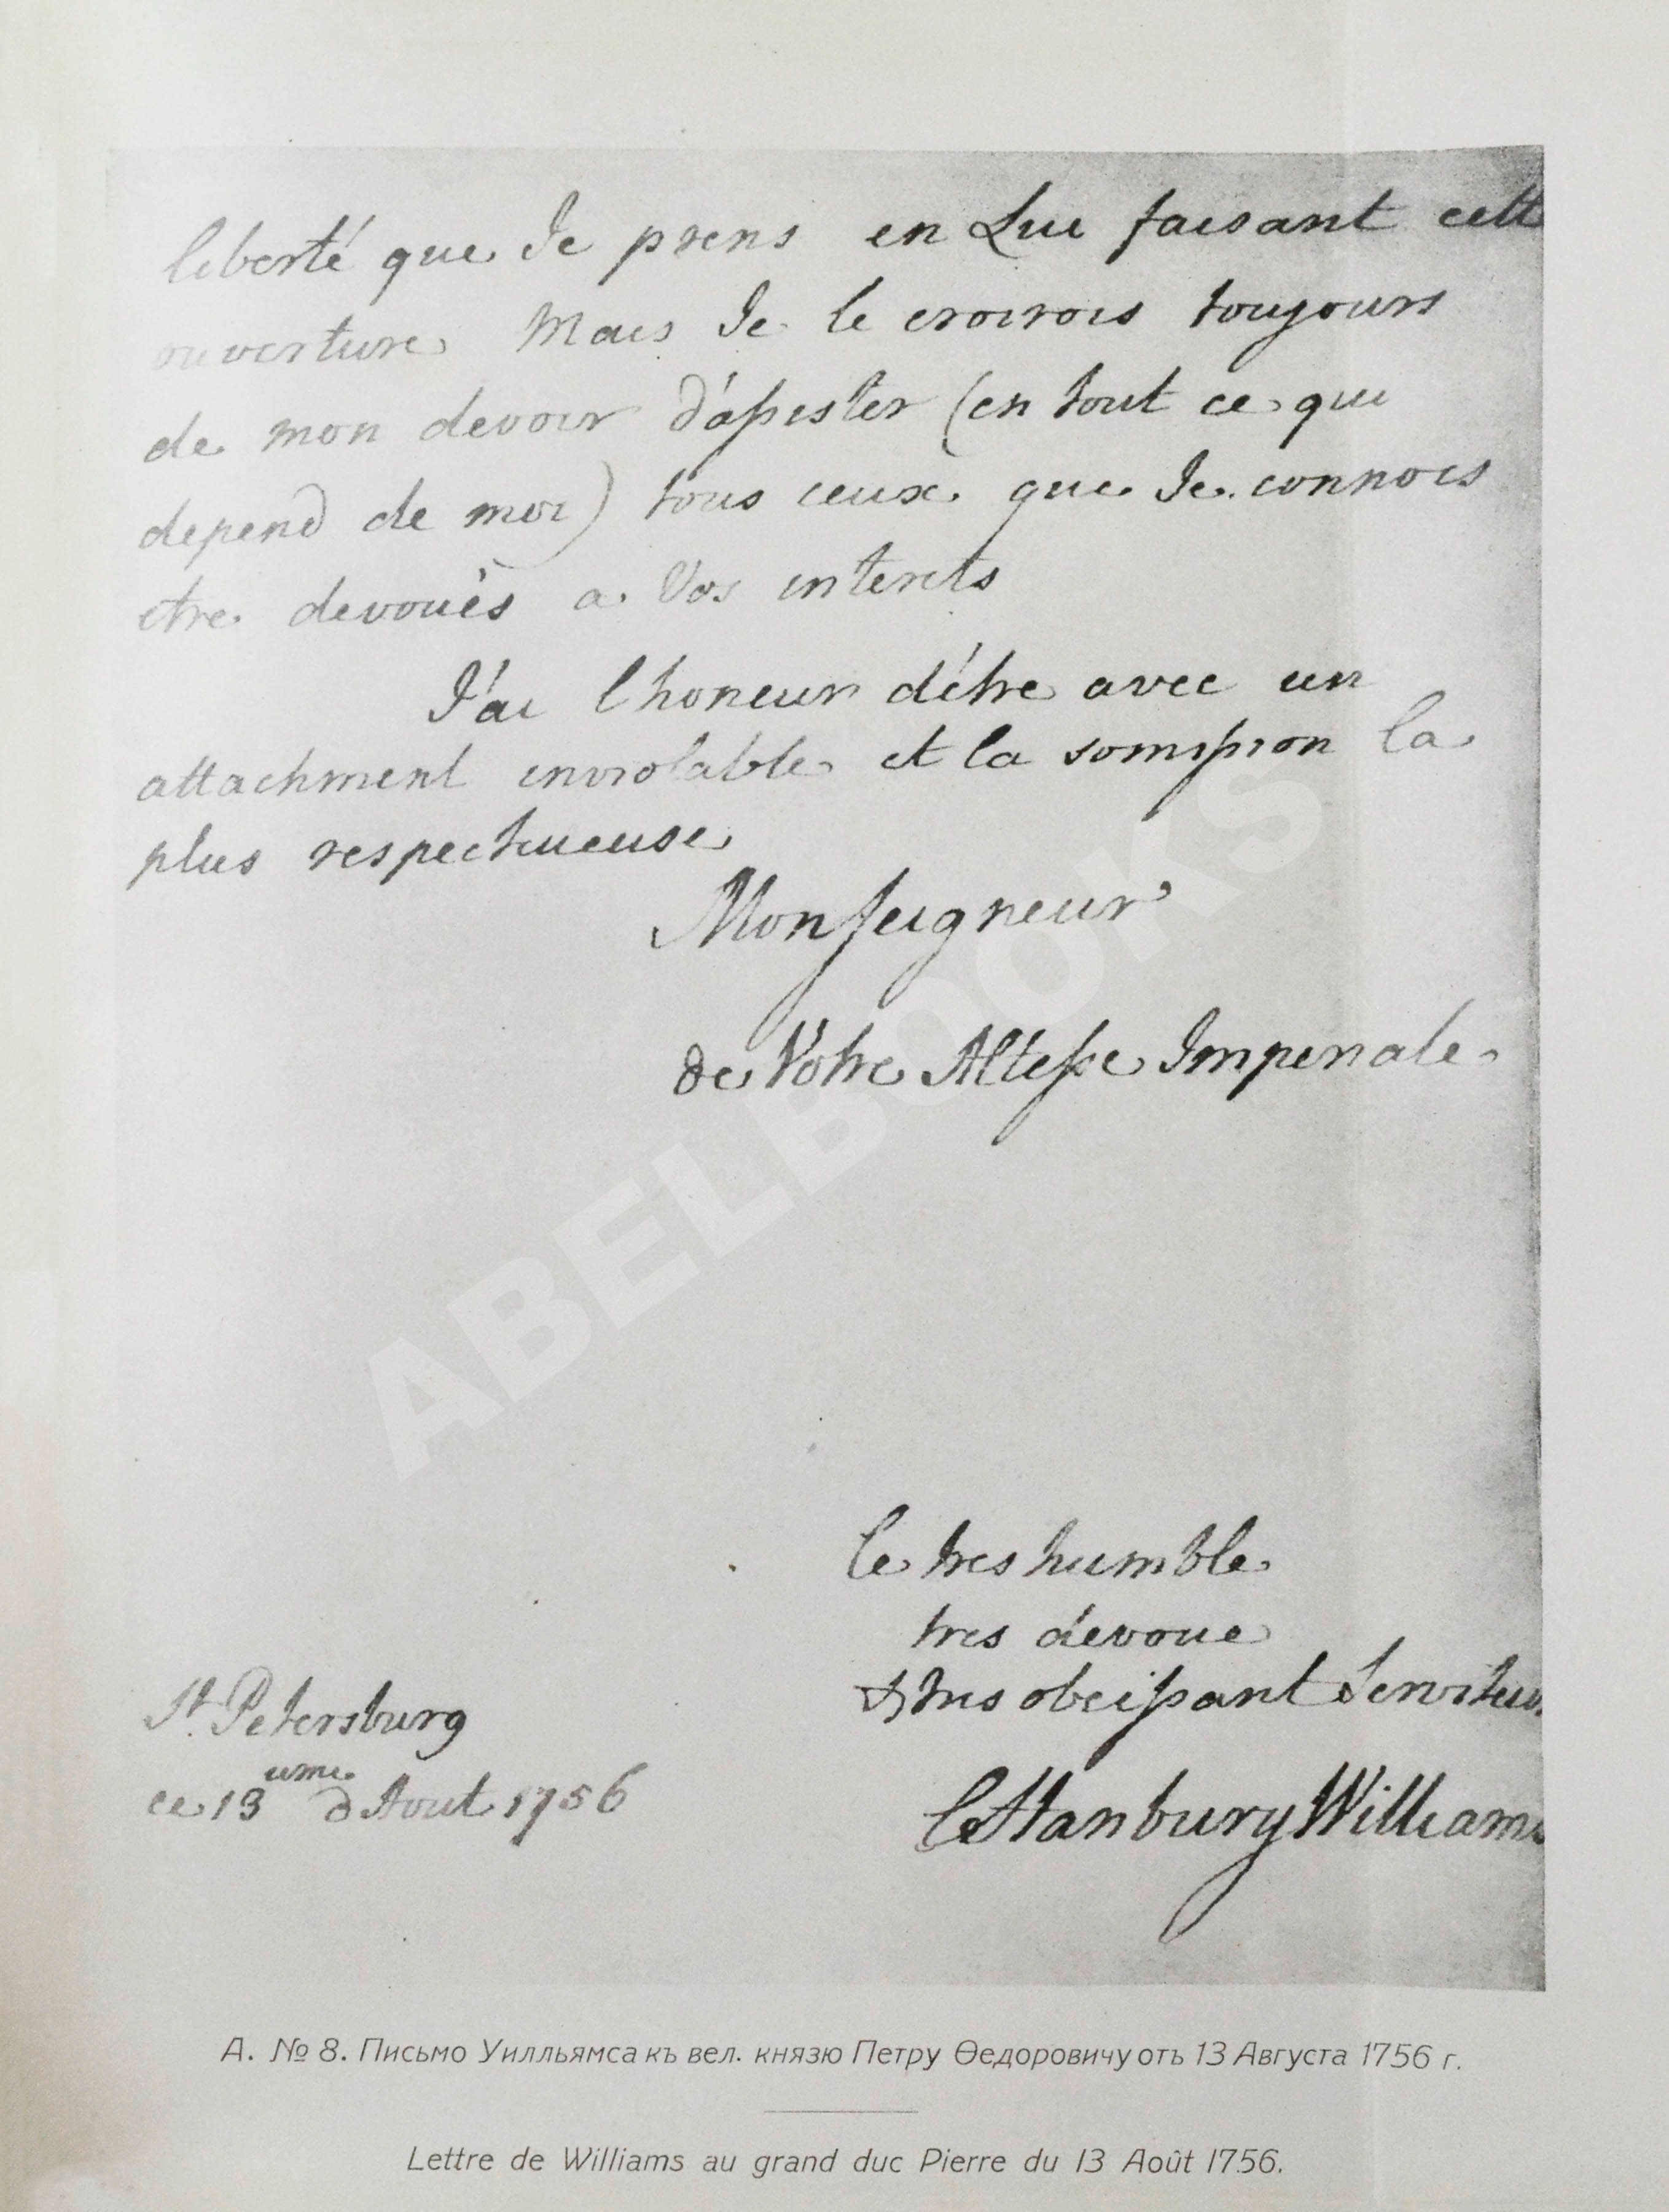 liberté que Je prens en Lui faisant cett
ouverture Mais Je le croirois toujours
de mon devoir d'assister (en tout ce qui
depend de moi) tous ceux que Je connois
etre devoués a Vos interets
J'ai l'honeur d'étre avec un
attachment inviolable et la somission la
plus respectueuse
Monseigneur
de Votre Altesse Imperiale
le tres humble
tres devoue
& tres obeissant Serviteur
St. Petersburg
ce 13 ieme d'Aout 1756
C Hanbury Williams
ABELBOOKS
А. № 8. Письмо Уилльямса къ вел. князю Петру Ѳедоровичу отъ 13 Августа 1756 г.
Lettre de Williams au grand duc Pierre du 13 Août 1756.